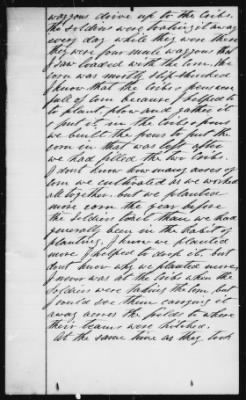 waggons drive up to the cribs.
the soldiers were hauling it away
every day while they were there
they were four mule waggons that
I saw loaded with the corn. The
corn was mostly slip shucked
I know that the cribs & pens were
full of corn because I helped to
to plant, plow and gather it
& put it in the cribs & pens
we built the pens to put the
corn in that was left after
we had filled the two cribs.
I dont know how many acres of
corn we cultivated as we worked
all together. but we planted
more corn the year before
the soldiers came than we had
generally been in the habit of
planting. I know we planted
more I helped to drop it. but
dont know why we planted more,
I never was at the cribs when the
soldiers were taking the corn but
I could see them carrying it
away across the field to where
their teams were hitched.
At the same time as they took